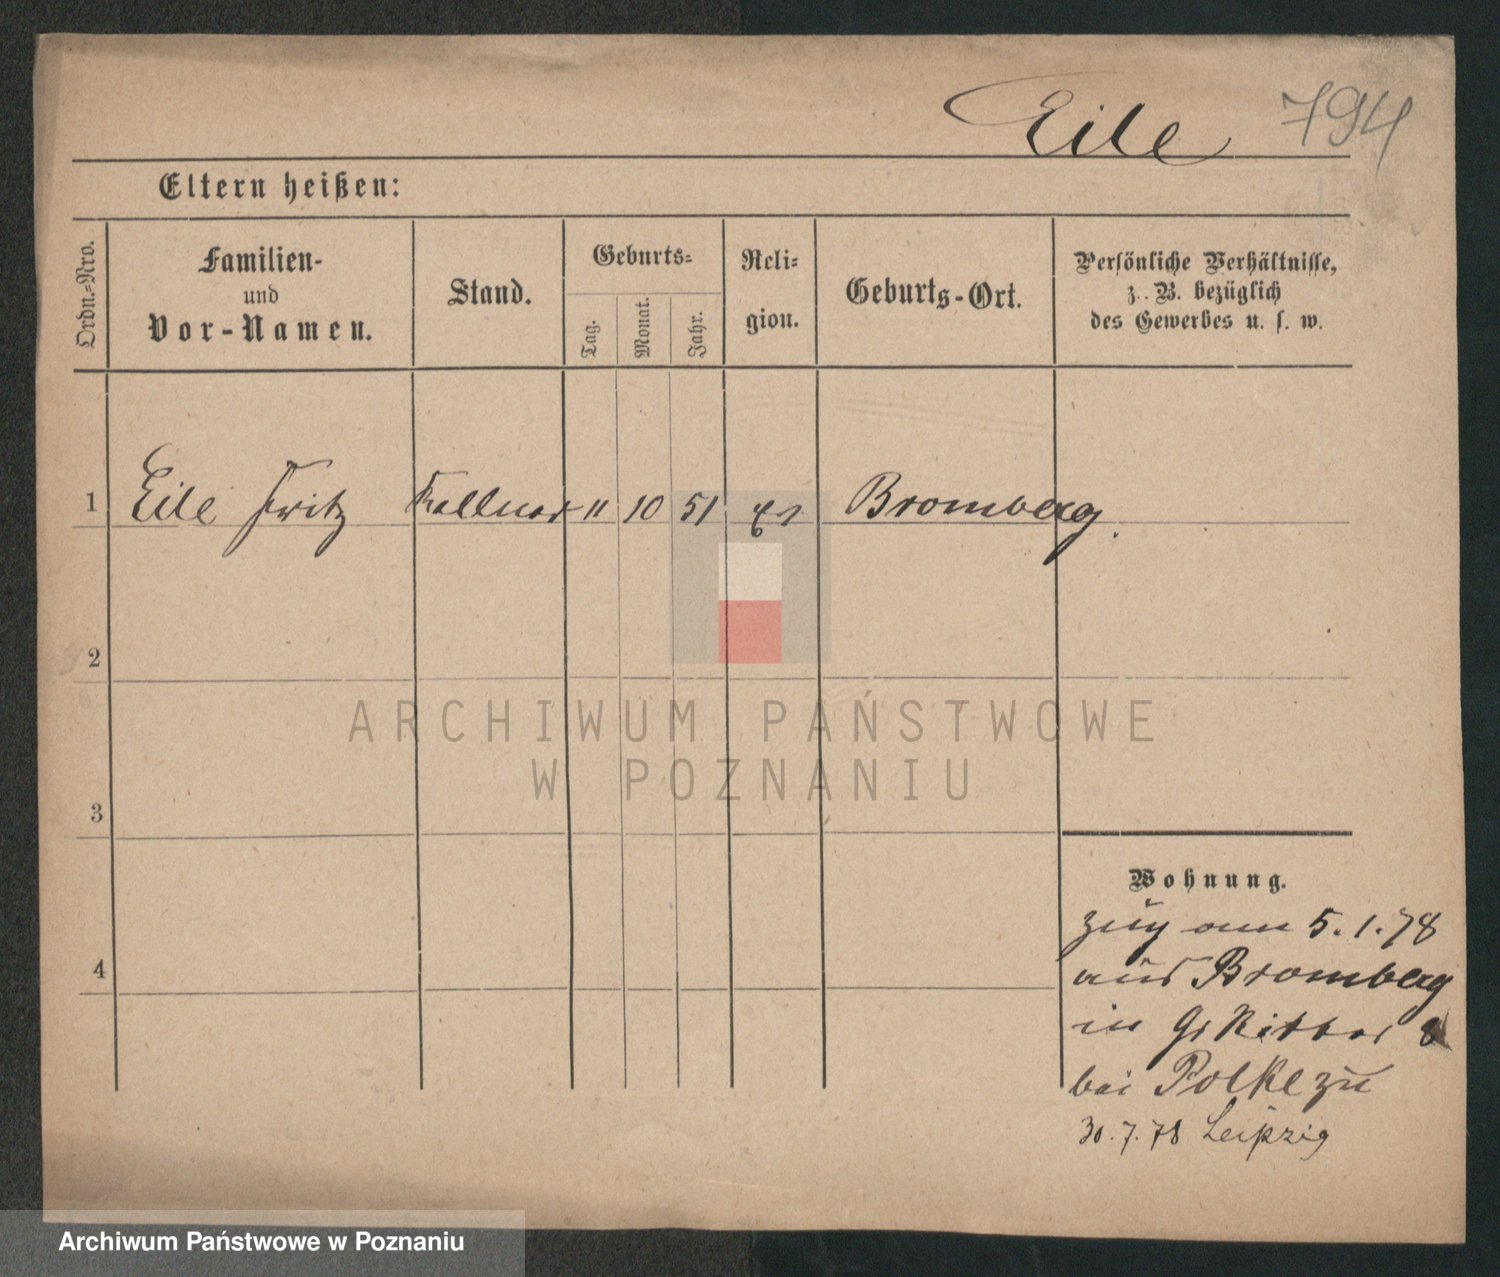 Eile 794
Eltern heißen:
Ordn.-Nro.
Familien-
und
Vor-Namen.
Stand.
Geburts-
Tag.
Monat.
Jahr.
Reli-
gion.
Geburts-Ort.
Persönliche Verhältnisse,
z. B. bezüglich
des Gewerbes u. s. w.
1 Eile Fritz Kellner 11 10 51 Bromberg.
2
3
4
ARCHIWUM PAŃSTWOWE
W POZNANIU
Wohnung.
zug am 5.1.78
aus Bromberg
in Gr Ritter 8
bei Polke zu
30.7.78 Leipzig
Archiwum Państwowe w Poznaniu